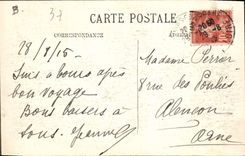 B
37
CARTE POSTALE
CORRESPONDANCE
28/8/15
Suis à bourg après
bon voyage
Bons baisers à
tous. Jeanne
Madame Perrier
8 rue des Poulies
Alençon
Orne